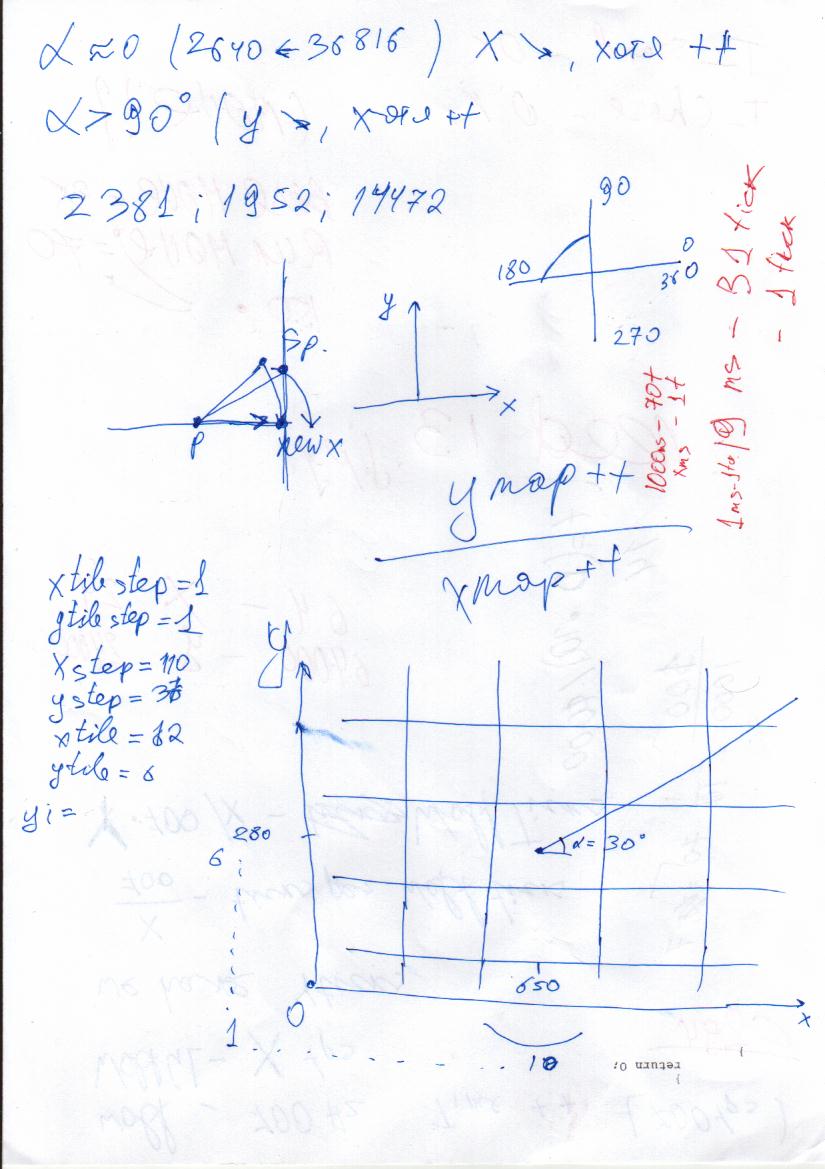 α ≈ 0 (2640 ← 36816) X ↘, хотя ++
α > 90° (y ↘, хотя ++
2381; 1952; 14472
90
180
0
360
270
Sp.
P
new x
y
x
1000ms – 70t
x ms – 1t
ms – 1 tick
- 1 tick
y map ++
x map ++
xtile step = 1
ytile step = 1
xstep = 110
ystep =
xtile = 12
ytile = 6
yi =
y
280
6
α = 30°
650
0
x
1
10
}
return 0;
}